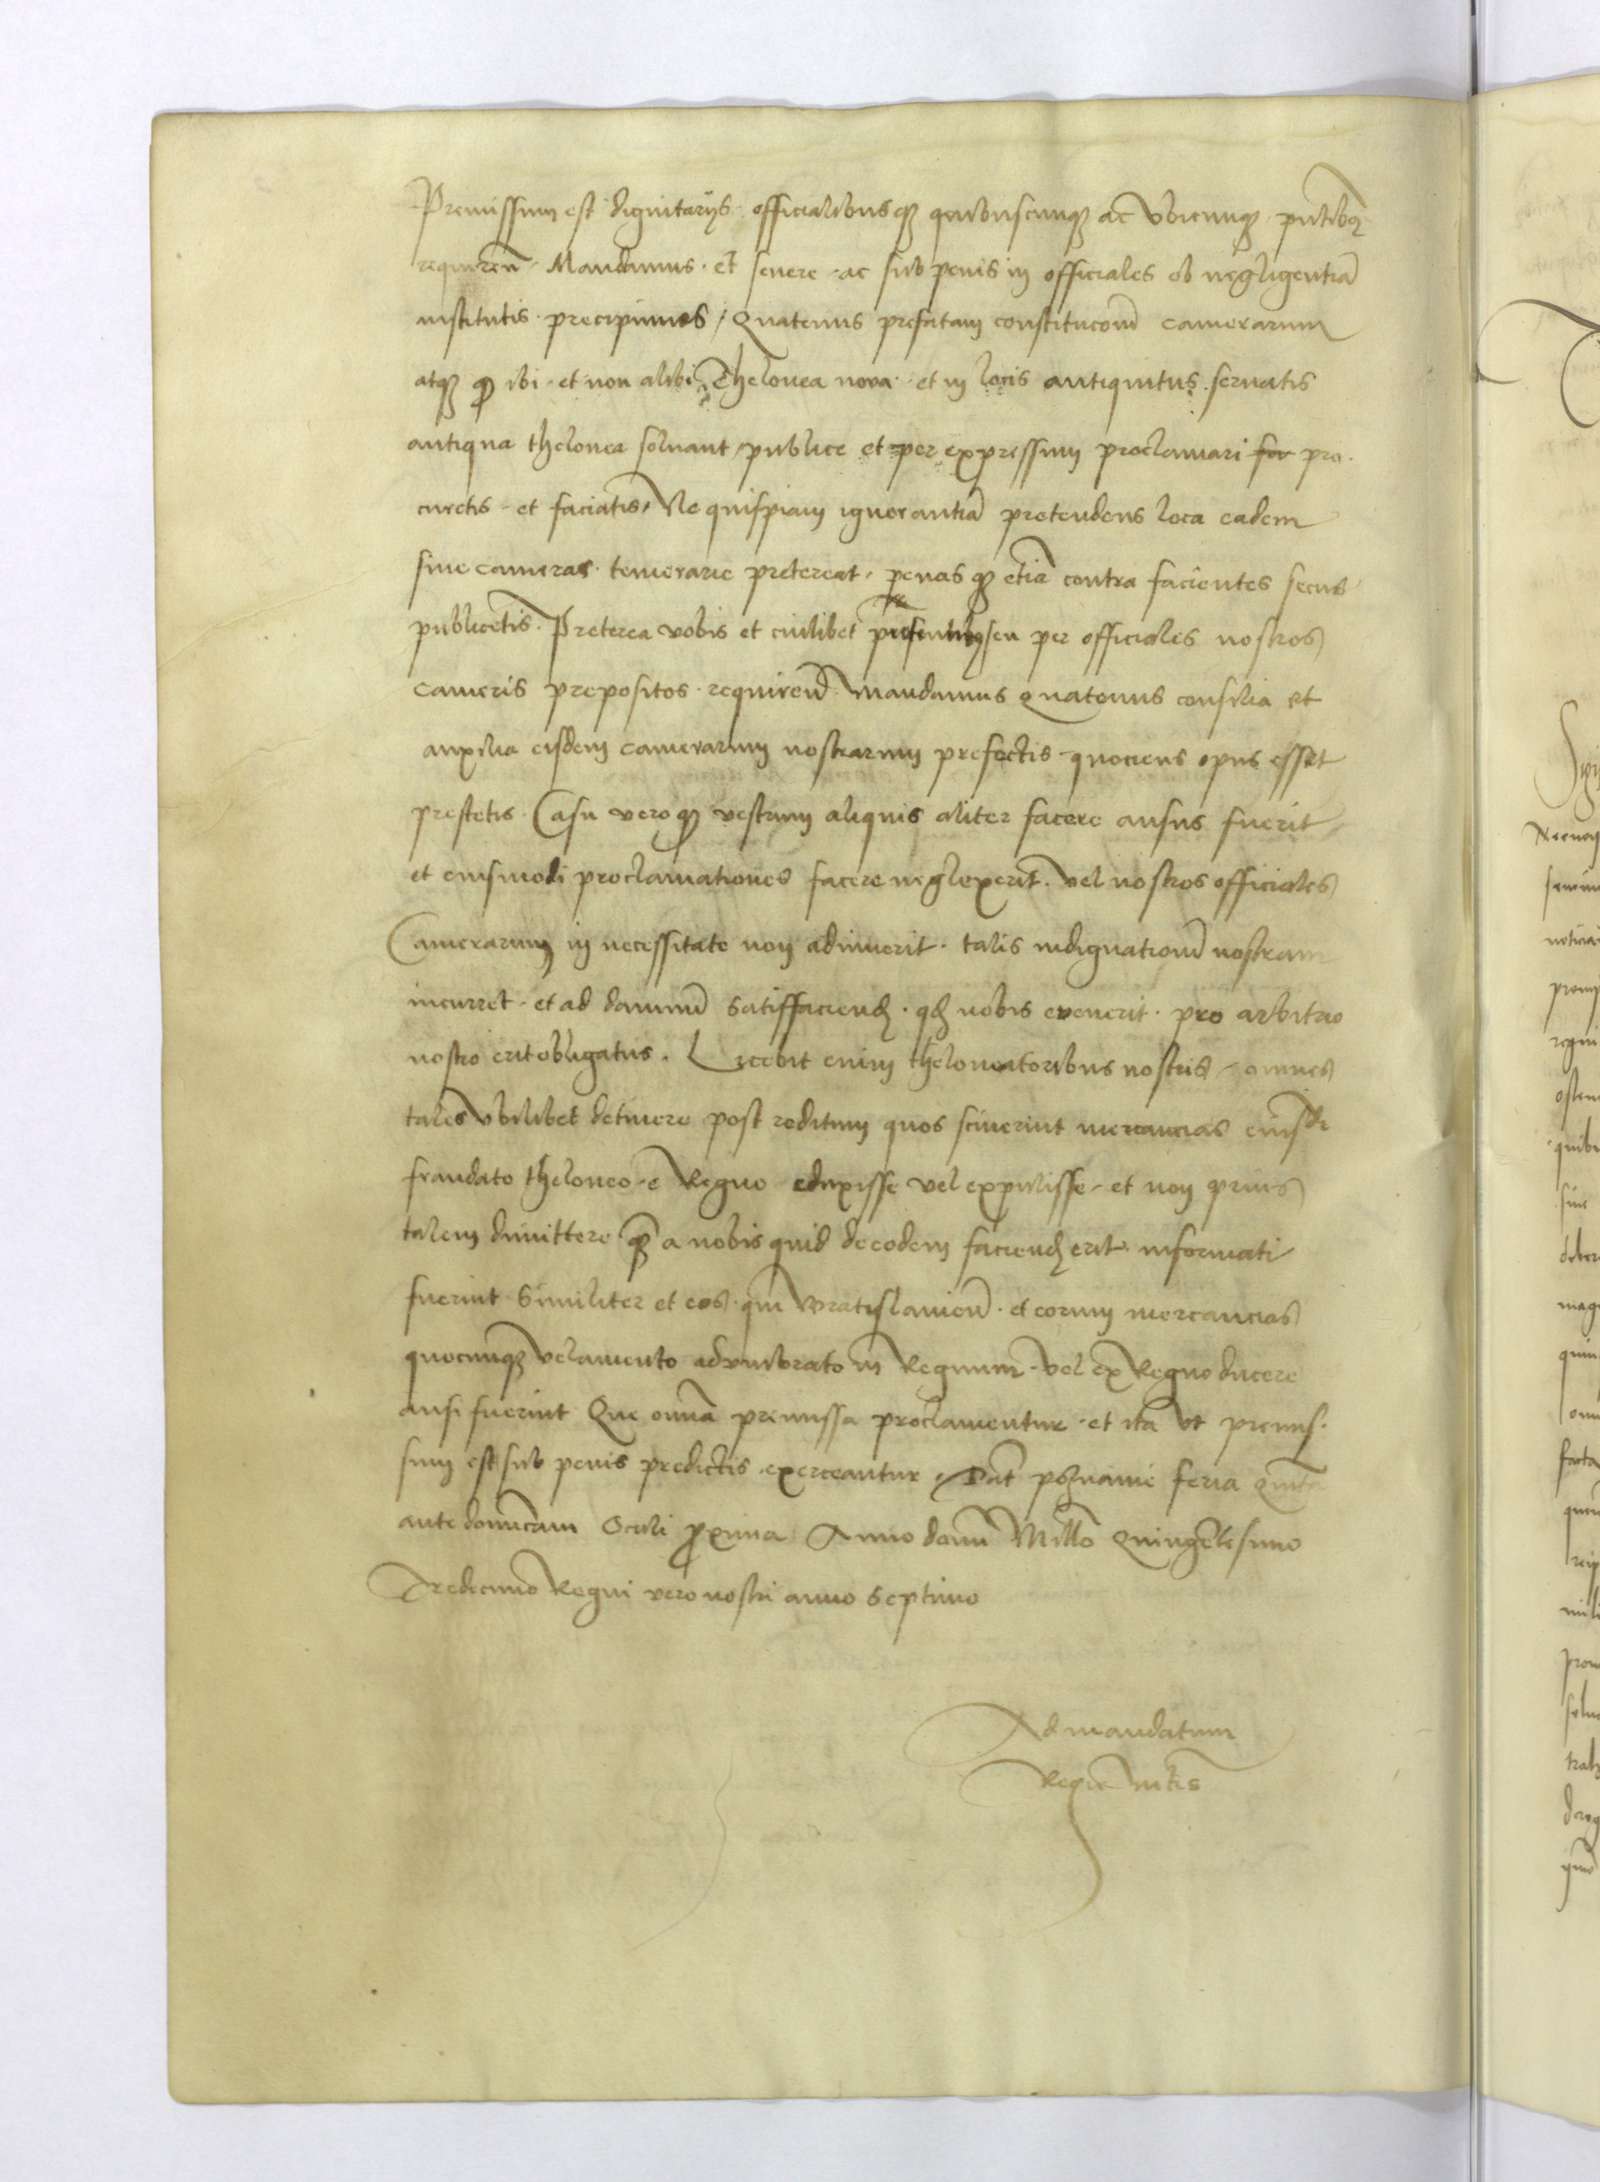 Premissum est dignitarÿs officialibusqȝ quibuscunqȝ ac vbicunqȝ pntibȝ
requiren̄ Mandamus et seuere ac sub penis in officiales ob negligentiā
institutis precipimus / Quatenus prefatam constitucōnē camerarum
atqȝ qȝ ibi et non alibi Thelonea noua et in locis antiquitus seruatis
antiqua thelonea soluant publice et per expressum proclamari for pro
curetis et faciatis Ne quispiam ignorantiā pretendens loca eadem
siue cameras temerarie pretereat penas qȝ etiā contra facientes secus
publicetis Preterea vobis et cuilibet vr̄m presentibȝ seu per officiales nostros
cameris prepositos requiren̄ mandamus quatenus consilia et
auxilia eisdem camerarum nostrarum prefectis quociens opus esset
prestetis Casu vero qȝ vestrum aliquis aliter facere ausus fuerit
et eiusmodi proclamationes facere neglexerit vel nostros officiales
Camerarum in necessitate non adiuuerit talis indignationē nostram
incurret et ad damnū satisfaciendȝ qḏ nobis euenerit pro arbitrio
nostro erit obligatus. Licebit enim theloneatoribus nostris omnes
tales vbilibet detinere post reditum quos sciuerint mercancias eiusdē
fraudato theloneo e Regno eduxisse vel expulisse et non prius
talem dimittere qȝ̄ a nobis quid de eodem faciendȝ erit informati
fuerint Similiter et eos qui Wratislauien̄ et eorum mercancias
quocunqȝ velamento adumbrato in Regnum vel ex Regno ducere
ausi fuerint Que omnā premissa proclamentur et ita vt premis
sum est sub penis predictis exerceantur Dat̄ poznanie feria quinta
ante domīcam Oculi p̄xima Anno domī Millō Quingētesimo
Tredecimo Regni vero nostri anno septimo
Ad mandatum
Regie mt̄is